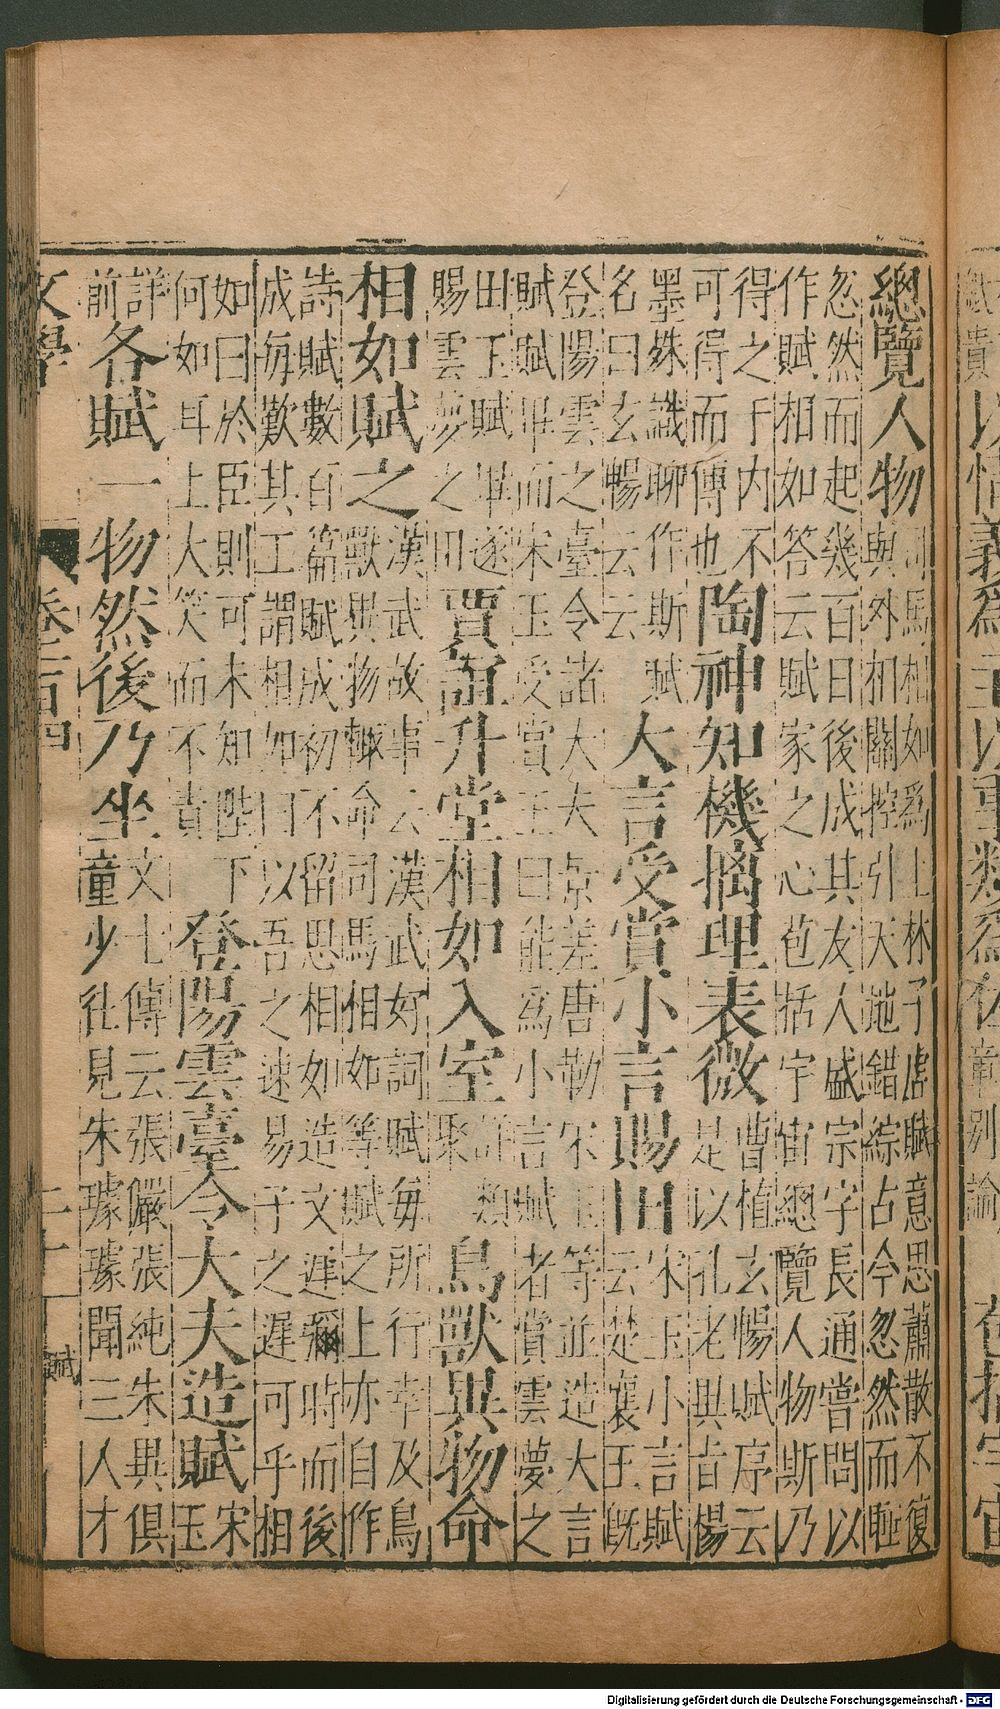 總覽人物 司馬相如爲上林子虛賦意思蕭散不復
與外相關控引天地錯綜古今忽然而睡
忽然而起幾百日後成其友人盛宗字長通嘗問以
作賦相如答云賦家之心苞括宇宙總覽人物斯乃
得之于内不
可得而傳也 陶神知機摛理表微 曹植玄暢賦序云
是以孔老與昔楊
墨殊識聊作斯賦
名曰玄暢云云 大言受賞小言賜田 宋玉小言賦
云楚襄王既
登陽雲之臺令諸大夫景差唐勒宋玉等並造大言
賦賦畢而宋玉受賞王曰能爲小言賦者賞雲夢之
田玉賦畢遂
賜雲夢之田 賈誼升堂相如入室 詳類
聚 鳥獸異物命
相如賦之 漢武故事云漢武好詞賦每所行幸及鳥
獸異物輙命司馬相如等賦之上亦自作
詩賦數百篇賦成初不留思相如造文遲彌時而後
成每歎其工謂相如曰以吾之速易子之遲可乎相
如曰於臣則可未知陛下
何如耳上大笑而不責 登陽雲臺令大夫造賦 宋
玉
詳
前 各賦一物然後乃坐 文七傳云張儼張純朱異俱
童少徃見朱璩璩聞三人才
文學 卷一百四 賦
Digitalisierung gefördert durch die Deutsche Forschungsgemeinschaft - DFG